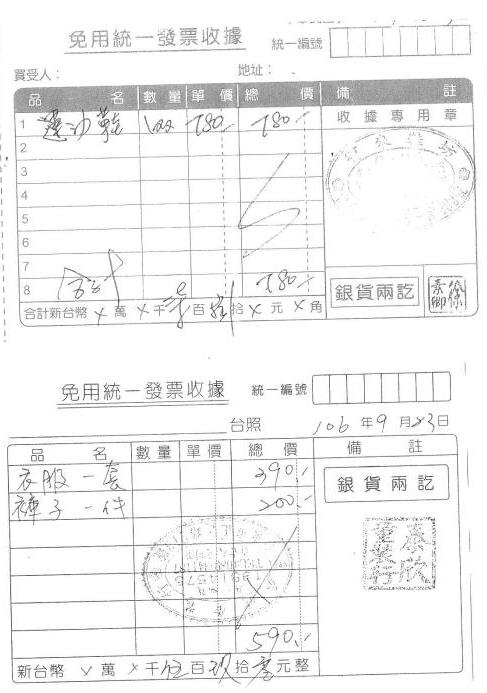 免用統一發票收據 統一編號
買受人： 地址：
品 名 數量 單價 總 價 備 註
1 運動鞋 1双 780.- 780.- 收據專用章
2
3
4
5
6
7
8 合計 780.-
銀貨兩訖
合計新台幣 萬 千 百 拾 元 角
免用統一發票收據 統一編號
台照 106 年 9 月 23 日
品 名 數量 單價 總 價 備 註
衣服一套 390.-
褲子一件 200.-
銀貨兩訖
590.-
新台幣 萬 千 伍 百 玖 拾 零 元整